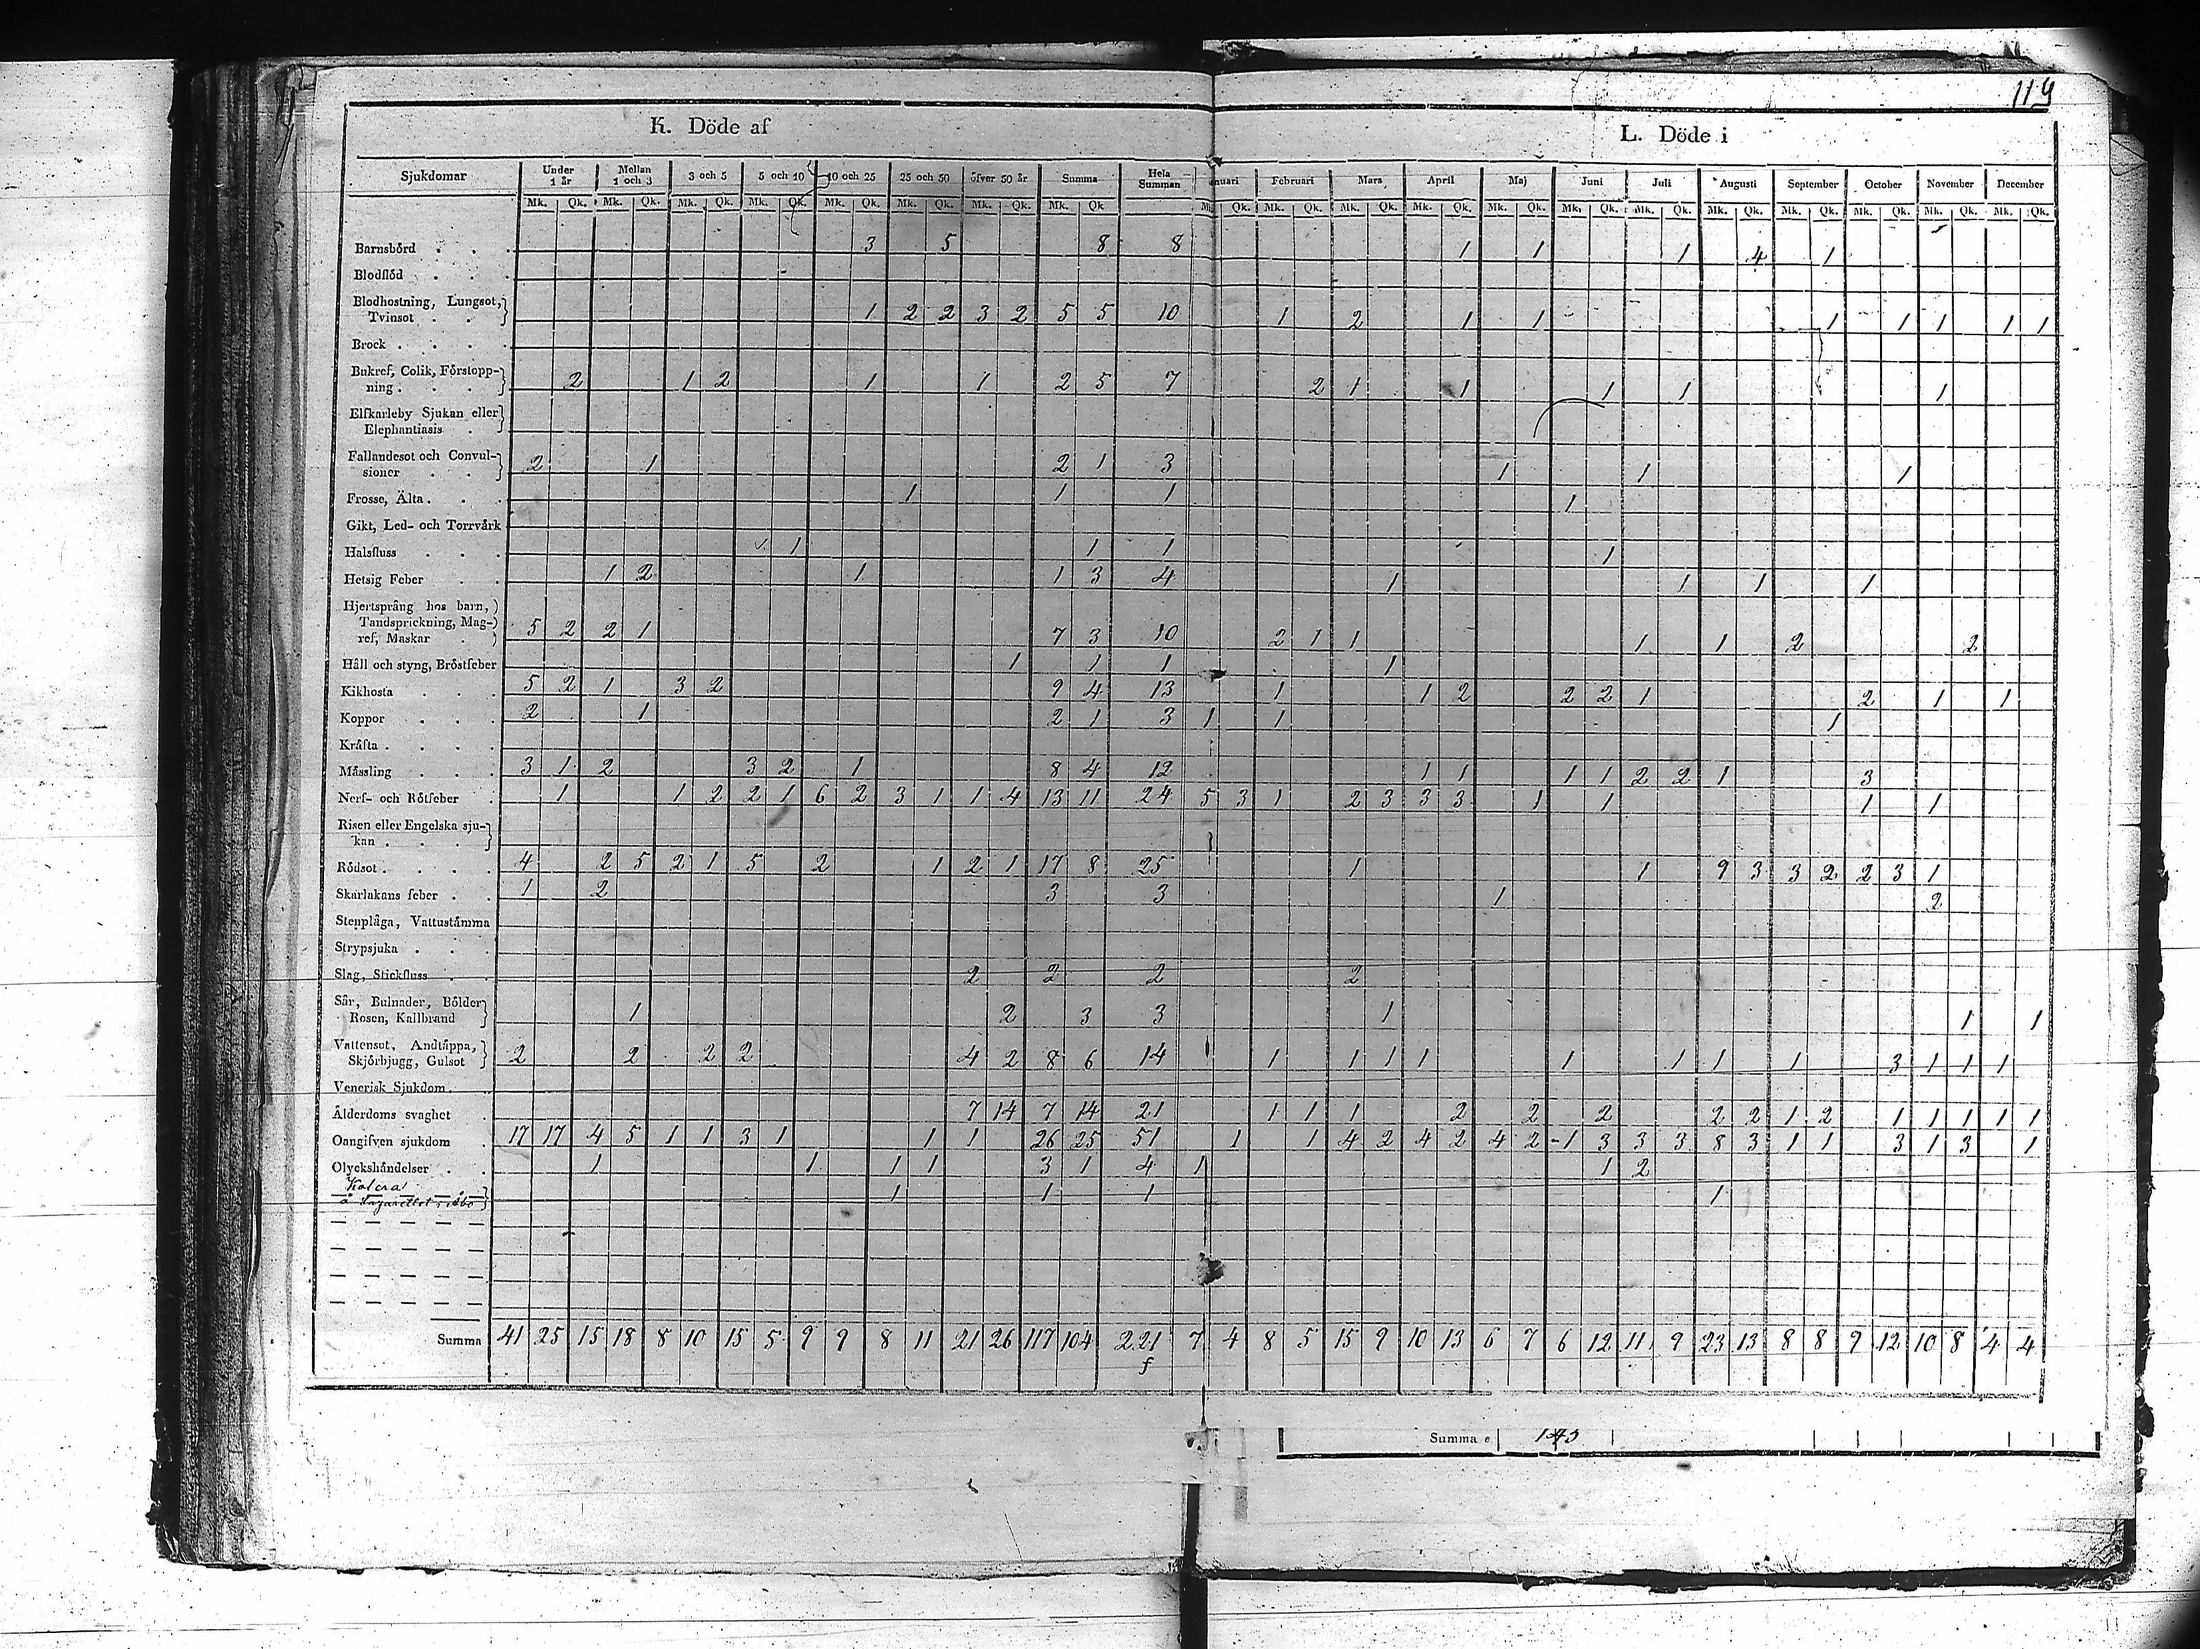 119
K. Döde af
L. Döde i
Sjukdomar Under 1 år Mellan 1 och 3 3 och 5 5 och 10 10 och 25 25 och 50 öfver 50 år Summa Hela Summan nuari Februari Mars April Maj Juni Juli Augusti September October November December
Mk. Qk. Mk. Qk. Mk. Qk. Mk. Qk. Mk. Qk. Mk. Qk. Mk. Qk. Mk. Qk Mk. Qk. Mk. Qk. Mk. Qk. Mk. Qk. Mk. Qk. Mk. Qk. Mk. Qk. Mk. Qk. Mk. Qk. Mk. Qk. Mk. Qk. Mk. Qk.
Barnsbörd . . . 3 5 8 8 1 1 1 4 1
Blodflöd . . .
Blodhostning, Lungsot,
Tvinsot . . . 1 2 2 3 2 5 5 10 1 2 1 1 1 1 1 1 1
Brock . . . .
Bukref, Colik, Förstopp-
ning . . . 2 1 2 1 1 2 5 7 2 1 1 1 1 1
Elfkarleby Sjukan eller
Elephantiasis .
Fallandesot och Convul-
sioner . . 2 1 2 1 3 1 1 1
Frosse, Älta . . . 1 1 1 1
Gikt, Led- och Torrvärk
Halsfluss . . . 1 1 1 1
Hetsig Feber . . 1 2 1 1 3 4 1 1 1 1
Hjertsprång hos barn,
Tandsprickning, Mag-
ref, Maskar . 5 2 2 1 7 3 10 2 1 1 1 1 2 2
Håll och styng, Bröstfeber 1 1 1 1
Kikhosta . . . 5 2 1 3 2 9 4 13 1 1 2 2 2 1 2 1 1
Koppor . . . 2 1 2 1 3 1 1 1
Kräfta . . . .
Mässling . . . 3 1 2 3 2 1 8 4 12 1 1 1 1 2 2 1 3
Nerf- och Rötfeber . 1 1 2 2 1 6 2 3 1 1 4 13 11 24 5 3 1 2 3 3 3 1 1 1 1
Risen eller Engelska sju-
kan . . . .
Rödsot . . . . 4 2 5 2 1 5 2 1 2 1 17 8 25 1 1 9 3 3 2 2 3 1
Skarlakans feber . . 1 2 3 3 1 2
Stenplåga, Vattustämma
Strypsjuka . . .
Slag, Stickfluss . . 2 2 2 2
Sår, Bulnader, Bölder
Rosen, Kallbrand 1 2 3 3 1 1 1
Vattensot, Andtäppa,
Skjörbjugg, Gulsot 2 2 2 2 4 2 8 6 14 1 1 1 1 1 1 1 1 3 1 1 1
Venerisk Sjukdom .
Ålderdoms svaghet . 7 14 7 14 21 1 1 1 2 2 2 2 2 1 2 1 1 1 1 1
Oangifven sjukdom . 17 17 4 5 1 1 3 1 1 1 26 25 51 1 1 4 2 4 2 4 2 1 3 3 3 8 3 1 1 3 1 3 1
Olyckshändelser . . 1 1 1 1 3 1 4 1 1 2
Kolera
å Lazarettet i Åbo 1 1 1 1
Summa 41 25 15 18 8 10 15 5 9 9 8 11 21 26 117 104 221 7 4 8 5 15 9 10 13 6 7 6 12 11 9 23 13 8 8 9 12 10 8 4 4
f
Summa